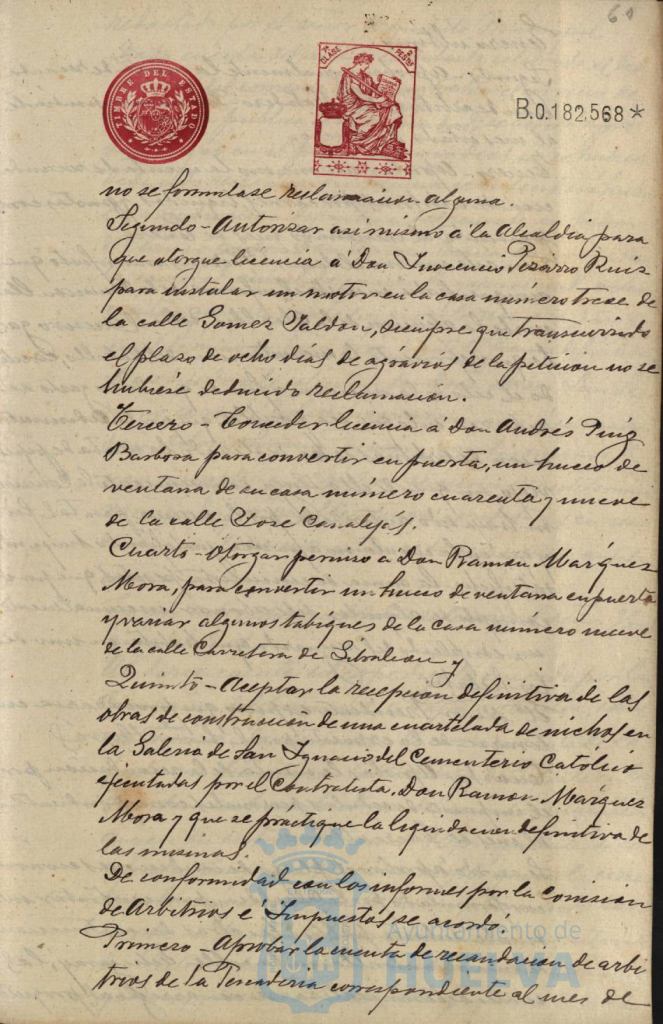 60
TIMBRE DEL ESTADO
7ª CLASE
2 PESTAS
B.0.182,568*
no se formulase reclamación alguna.
Segundo - Autorizar asimismo á la Alcaldia para
que otorgue licencia á Don Inocencio Pizarro Ruiz
para instalar un motor en la casa número trece de
la calle Gomez Jaldon, siempre que transcurrido
el plazo de ocho dias de agravios de la peticion no se
hubiese deducido reclamación.
Tercero - Conceder licencia á Don Andrés Puig
Barbosa para convertir en puerta, un hueco de
ventana de su casa número cuarenta y nueve
de la calle José Canalejas.
Cuarto - Otorgar permiso á Don Ramon Marquez
Mora, para convertir un hueco de ventana en puerta
y variar algunos tabiques de la casa número nueve
de la calle Carretera de Gibraleon y
Quinto - Aceptar la recepcion definitiva de las
obras de construcción de una cuartelada de nichos en
la Galeria de San Ignacio del Cementerio Católico
ejecutadas por el Contratista, Don Ramon Márquez
Mora y que se práctique la liquidacion definitiva de
las mismas.
De conformidad con los informes por la Comisión
de Arbitrios é Impuestos se acordó:
Primero - Aprobar la cuenta de recaudacion de arbi
trios de la Pescaderia correspondiente al mes de
Ayuntamiento de
HUELVA